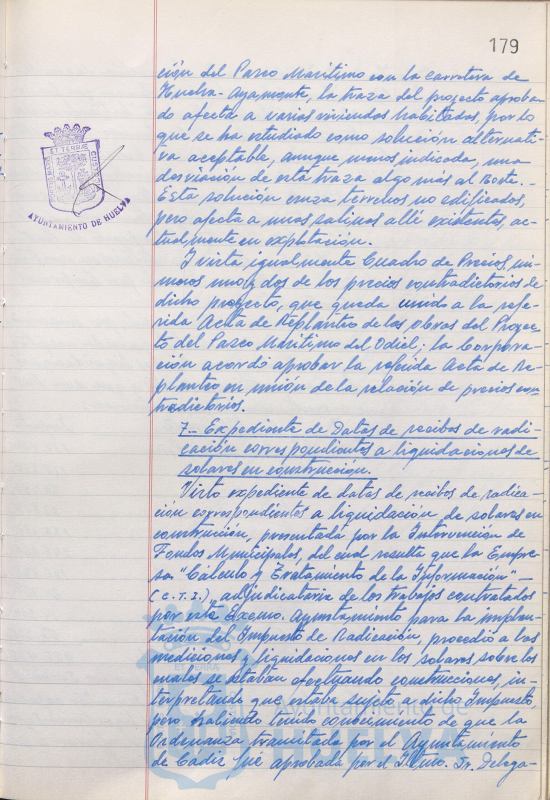 179
ción del Paseo Marítimo con la carretera de
Huelva-Ayamonte, la traza del proyecto aproba-
do afecta a varias viviendas habitadas, por lo
que se ha estudiado como solución alternati-
va aceptable, aunque menos indicada, una
desviación de esta traza algo más al Norte.-
Esta solución cruza terrenos no edificados,
pero afecta a unas salinas allí existentes, ac-
tualmente en explotación.
Y vista igualmente Cuadro de Precios, nú-
meros uno y dos de los precios contradictorios de
dicho proyecto, que queda unido a la refe-
rida Acta de Replanteo de las obras del Proyec-
to del Paseo Marítimo del Odiel; la Corpora-
ción acordó aprobar la referida Acta de Re-
planteo en unión de la relación de precios con-
tradictorios.
7.- Expediente de Datas de recibos de radi-
cación correspondientes a liquidaciones de
solares en construcción.
Visto expediente de datas de recibos de radica-
ción correspondientes a liquidación de solares en
construcción, presentada por la Intervención de
Fondos Municipales, del cual resulta que la Empre-
sa "Cálculo y Tratamiento de la Información" -
(C.T.I.), adjudicataria de los trabajos contratados
por este Excmo. Ayuntamiento para la implan-
tación del Impuesto de Radicación, procedió a las
mediciones y liquidaciones en los solares sobre los
cuales se estaban efectuando construcciones, in-
terpretando que estaba sujeto a dicho Impuesto,
pero habiendo tenido conocimiento de que la
Ordenanza tramitada por el Ayuntamiento
de Cádiz fue aprobada por el Iltmo. Sr. Delega-
AYUNTAMIENTO DE HUELVA